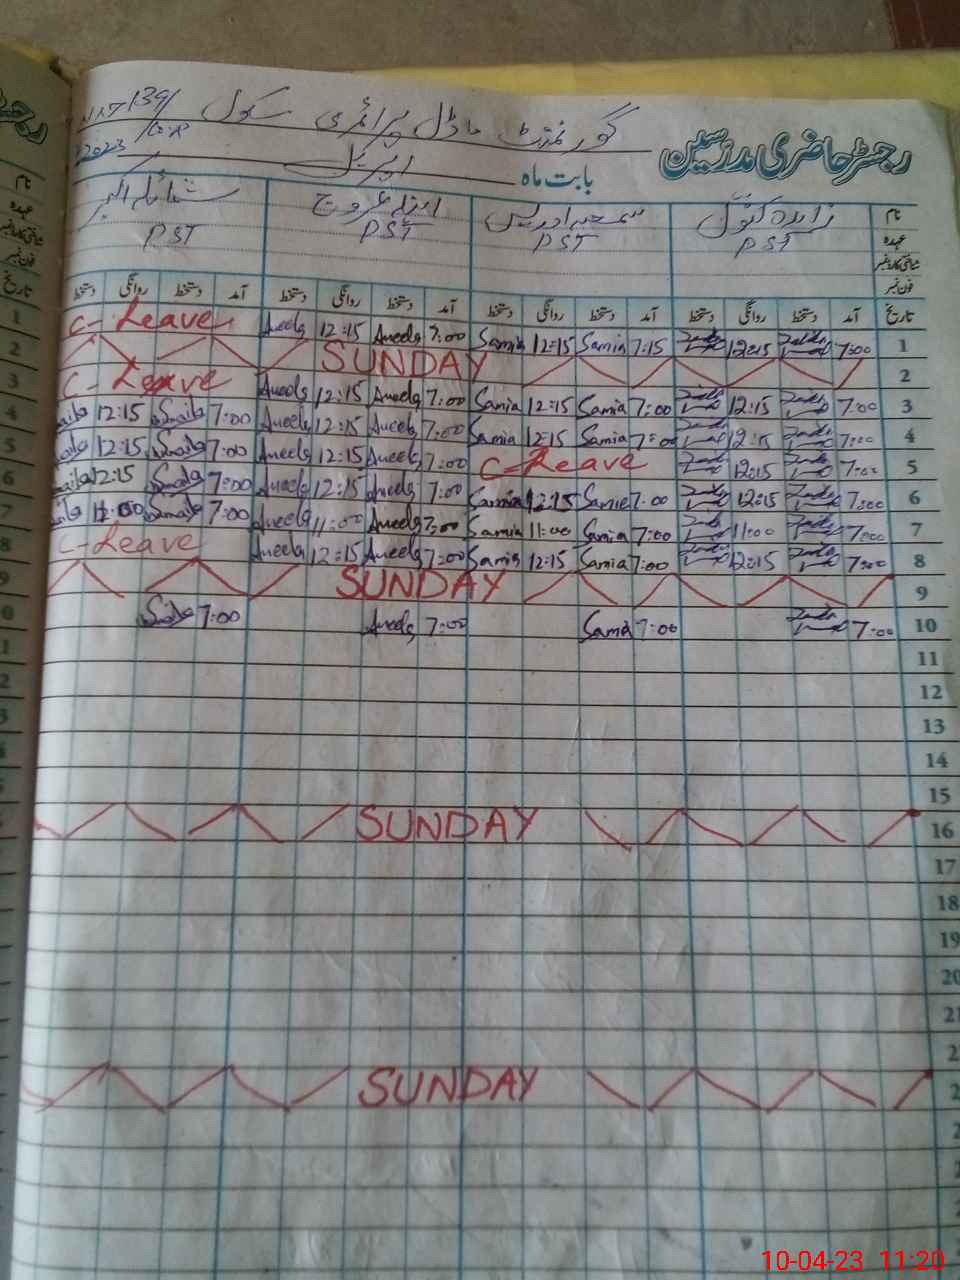 رجسٹر حاضری مدرسین
گورنمنٹ ماڈل پرائمری سکول 139/
بابت ماہ اپریل 2023
نام زاہدہ کنول سمعیہ ادریس
عہدہ PST PST PST PST
شناختی کارڈ نمبر
فون نمبر
تاریخ آمد دستخط روانگی دستخط آمد دستخط روانگی دستخط آمد دستخط روانگی دستخط آمد دستخط روانگی دستخط
C-Leave Aneela 12:15 Aneela 7:00 Samia 12:15 Samia 7:15 12:15 7:00 1
SUNDAY 2
C-Leave Aneela 12:15 Aneela 7:00 Samia 12:15 Samia 7:00 12:15 7:00 3
12:15 7:00 Aneela 12:15 Aneela 7:00 Samia 12:15 Samia 7:00 12:15 7:00 4
12:15 7:00 Aneela 12:15 Aneela 7:00 C-Leave 12:15 7:00 5
12:15 7:00 Aneela 12:15 Aneela 7:00 Samia 12:15 Samia 7:00 12:15 7:00 6
7:00 Aneela 11:00 Aneela 7:00 Samia 11:00 Samia 7:00 11:00 7:00 7
C-Leave Aneela 12:15 Aneela 7:00 Samia 12:15 Samia 7:00 12:15 7:00 8
SUNDAY 9
7:00 Aneela 7:00 Samia 7:00 7:00 10
11
12
13
14
15
SUNDAY 16
17
18
19
20
21
SUNDAY
10-04-23 11:20